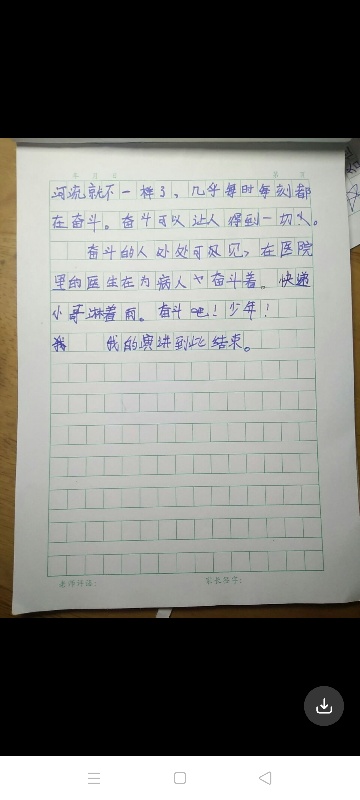 河流就不一样了，几乎每时每刻都
在奋斗。奋斗可以让人得到一切。
奋斗的人处处可见，在医院
里的医生在为病人奋斗着。快递
小哥淋着雨。奋斗吧！少年！
我的演讲到此结束。
老师评语：
家长签字：